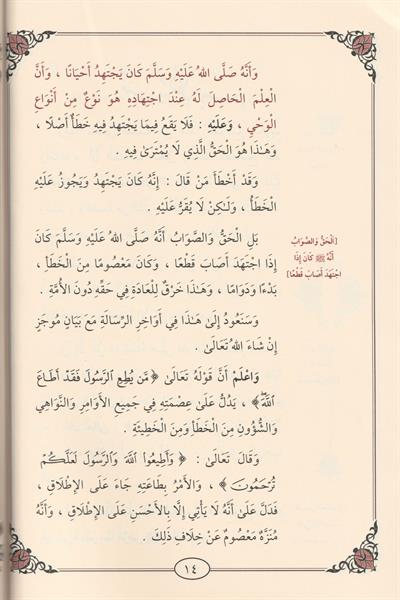 وَأَنَّهُ صَلَّى اللهُ عَلَيْهِ وَسَلَّمَ كَانَ يَجْتَهِدُ أَحْيَانًا ، وَأَنَّ
الْعِلْمَ الْحَاصِلَ لَهُ عِنْدَ اجْتِهَادِهِ هُوَ نَوْعٌ مِنْ أَنْوَاعِ
الْوَحْيِ ، وَعَلَيْهِ : فَلَا يَقَعُ فِيمَا يَجْتَهِدُ فِيهِ خَطَأٌ أَصْلًا ،
وَهَـٰذَا هُوَ الْحَقُّ الَّذِي لَا يُمْتَرَىٰ فِيهِ .
وَقَدْ أَخْطَأَ مَنْ قَالَ : إِنَّهُ كَانَ يَجْتَهِدُ وَيَجُوزُ عَلَيْهِ
الْخَطَأُ ، وَلَـٰكِنْ لَا يُقَرُّ عَلَيْهِ .
بَلِ الْحَقُّ وَالصَّوَابُ أَنَّهُ صَلَّى اللهُ عَلَيْهِ وَسَلَّمَ كَانَ
إِذَا اجْتَهَدَ أَصَابَ قَطْعًا ، وَكَانَ مَعْصُومًا مِنَ الْخَطَأِ ،
بَدْءًا وَدَوَامًا ، وَهَـٰذَا خَرْقٌ لِلْعَادَةِ فِي حَقِّهِ دُونَ الْأُمَّةِ .
[الْحَقُّ وَالصَّوَابُ
أَنَّهُ ﷺ كَانَ إِذَا
اجْتَهَدَ أَصَابَ قَطْعًا]
وَسَنَعُودُ إِلَىٰ هَـٰذَا فِي أَوَاخِرِ الرِّسَالَةِ مَعَ بَيَانٍ مُوجَزٍ
إِنْ شَاءَ اللهُ تَعَالَىٰ .
وَاعْلَمْ أَنَّ قَوْلَهُ تَعَالَىٰ ﴿مَّن يُطِعِ ٱلرَّسُولَ فَقَدْ أَطَاعَ
ٱللَّهَ﴾ ، يَدُلُّ عَلَىٰ عِصْمَتِهِ فِي جَمِيعِ الْأَوَامِرِ وَالنَّوَاهِي
وَالشُّؤُونِ مِنَ الْخَطَأِ وَمِنَ الْخَطِيئَةِ .
وَقَالَ تَعَالَىٰ : ﴿ وَأَطِيعُوا۟ ٱللَّهَ وَٱلرَّسُولَ لَعَلَّكُمْ
تُرْحَمُونَ﴾ ، وَالْأَمْرُ بِطَاعَتِهِ جَاءَ عَلَى الْإِطْلَاقِ ،
فَدَلَّ عَلَىٰ أَنَّهُ لَا يَأْتِي إِلَّا بِالْأَحْسَنِ عَلَى الْإِطْلَاقِ ، وَأَنَّهُ
مُنَزَّهٌ مَعْصُومٌ عَنْ خِلَافِ ذَلِكَ .
١٤